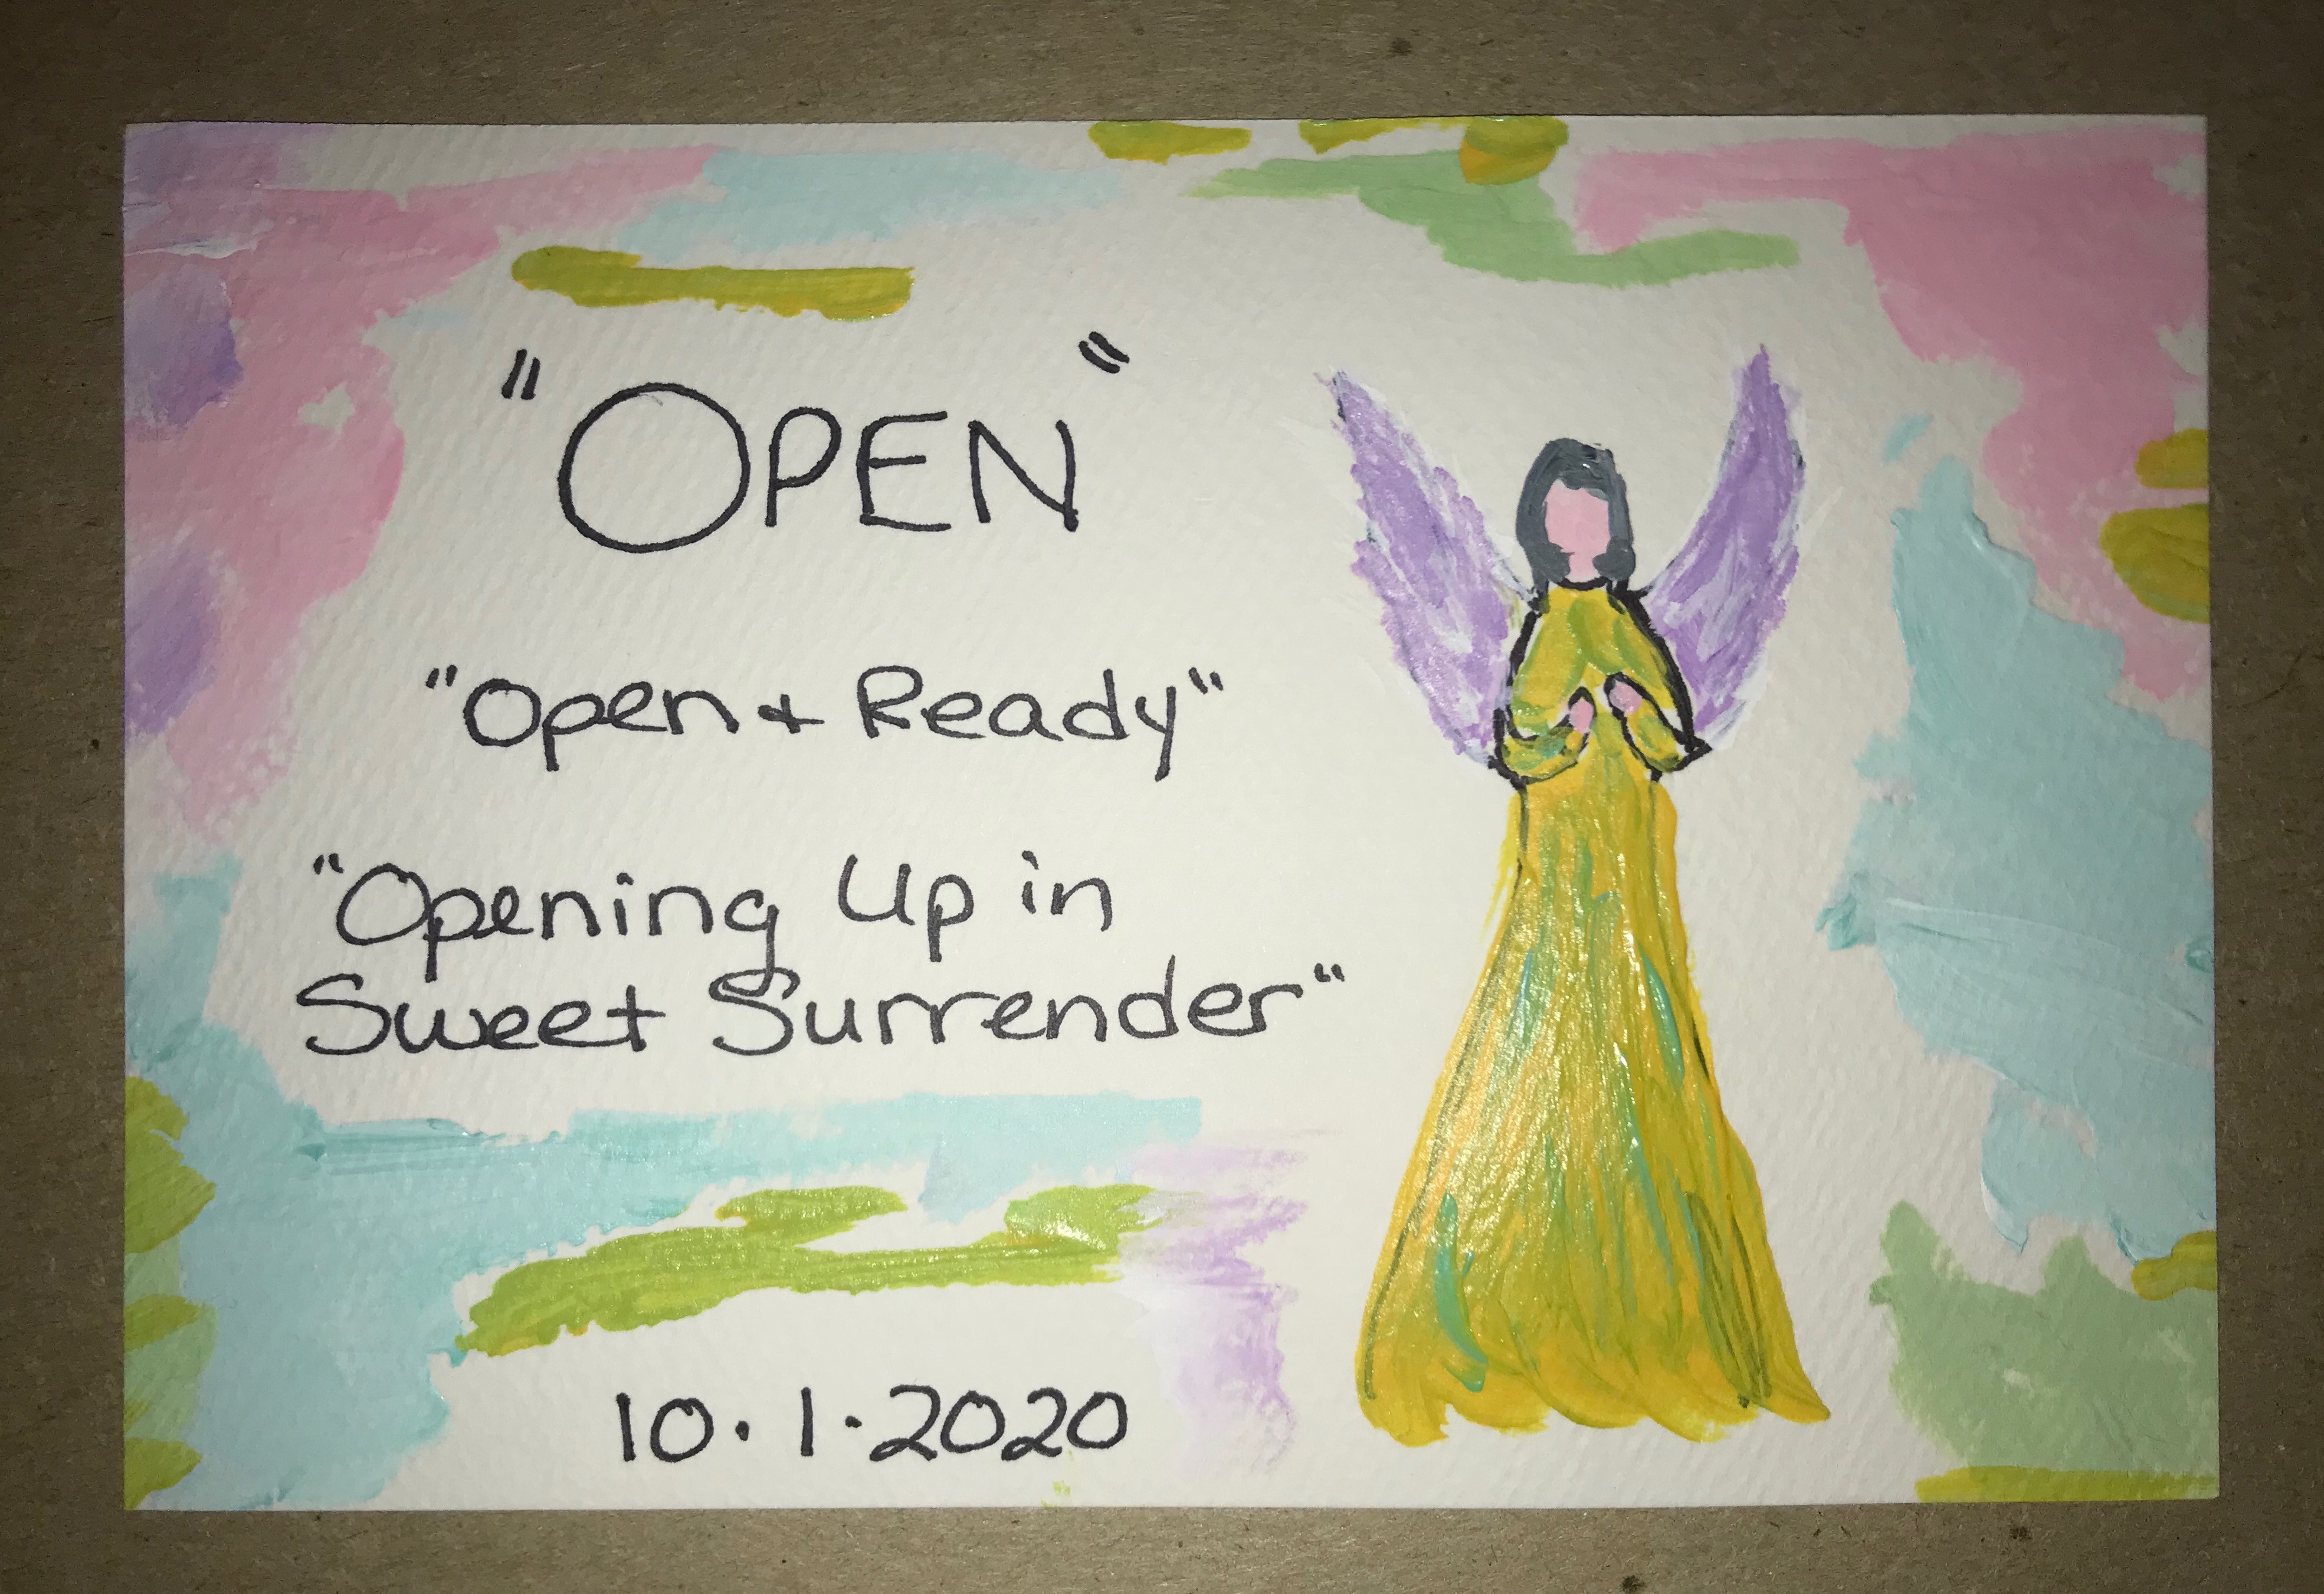 "OPEN"
"Open + Ready"
"Opening Up in
Sweet Surrender"
10.1.2020